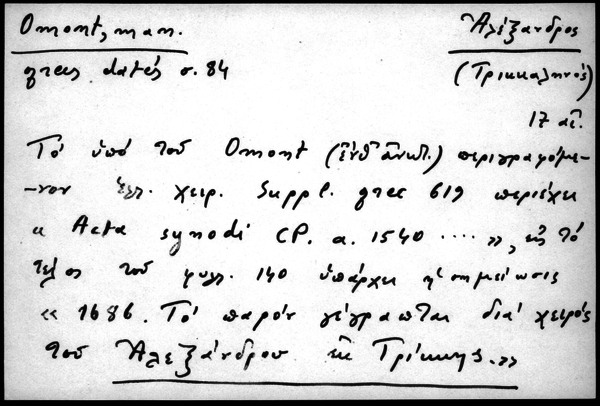 Omont, man. Ἀλέξανδρος
grecs datés σ. 84 (Τρικκαληνός)
17 αἰ.
Τό ὑπό τοῦ Omont (ἔνθ' ἀνωτ.) περιγραφόμε-
-νον ἑλ. χειρ. Suppl. grec 619 περιέχει
« Acta synodi CP. a. 1540 .... », εἰς τό
τέλος τοῦ φυλ. 140 ὑπάρχει ἡ σημείωσις
« 1686. Τό παρόν γέγραπται διά χειρός
τοῦ Ἀλεξάνδρου ἐκ Τρίκκης. »